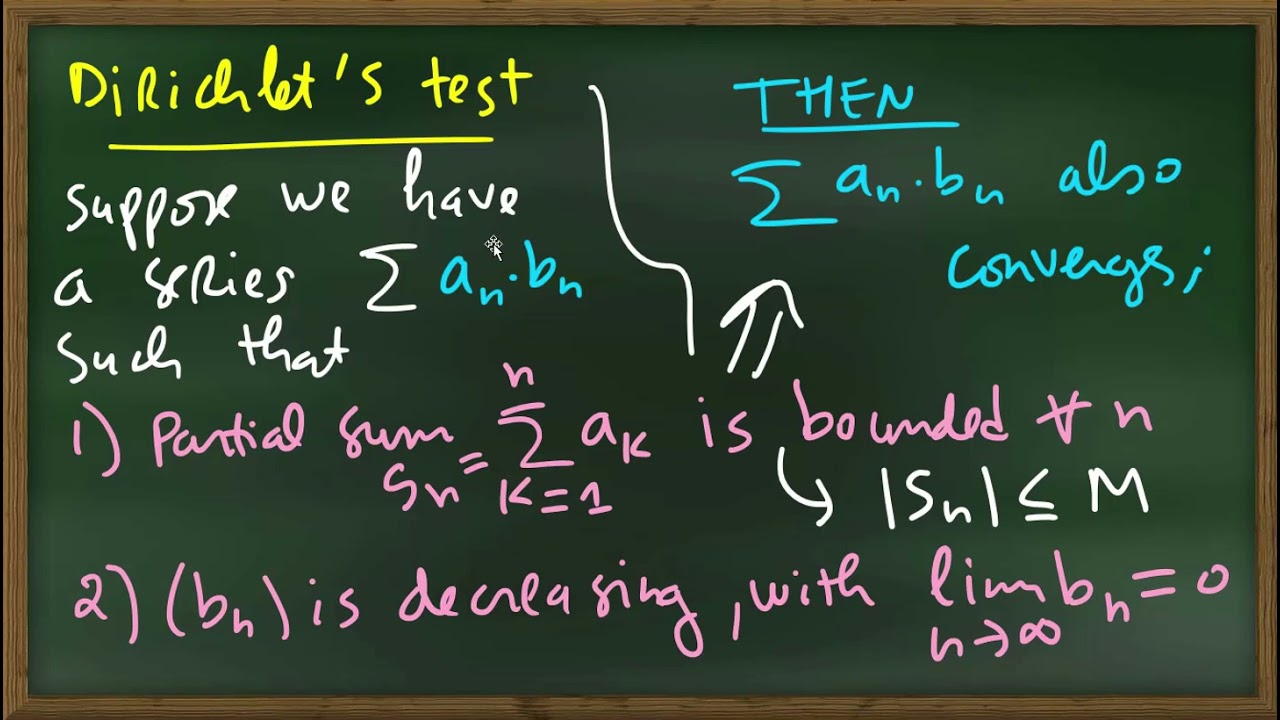 Dirichlet's test
suppose we have
a series ∑ aₙ·bₙ
such that
THEN
∑ aₙ·bₙ also
converges;
1) Partial sum Sₙ = ∑ₖ₌₁ⁿ aₖ is bounded ∀ n
↳ |Sₙ| ≤ M
2) (bₙ) is decreasing, with lim bₙ = 0
n→∞